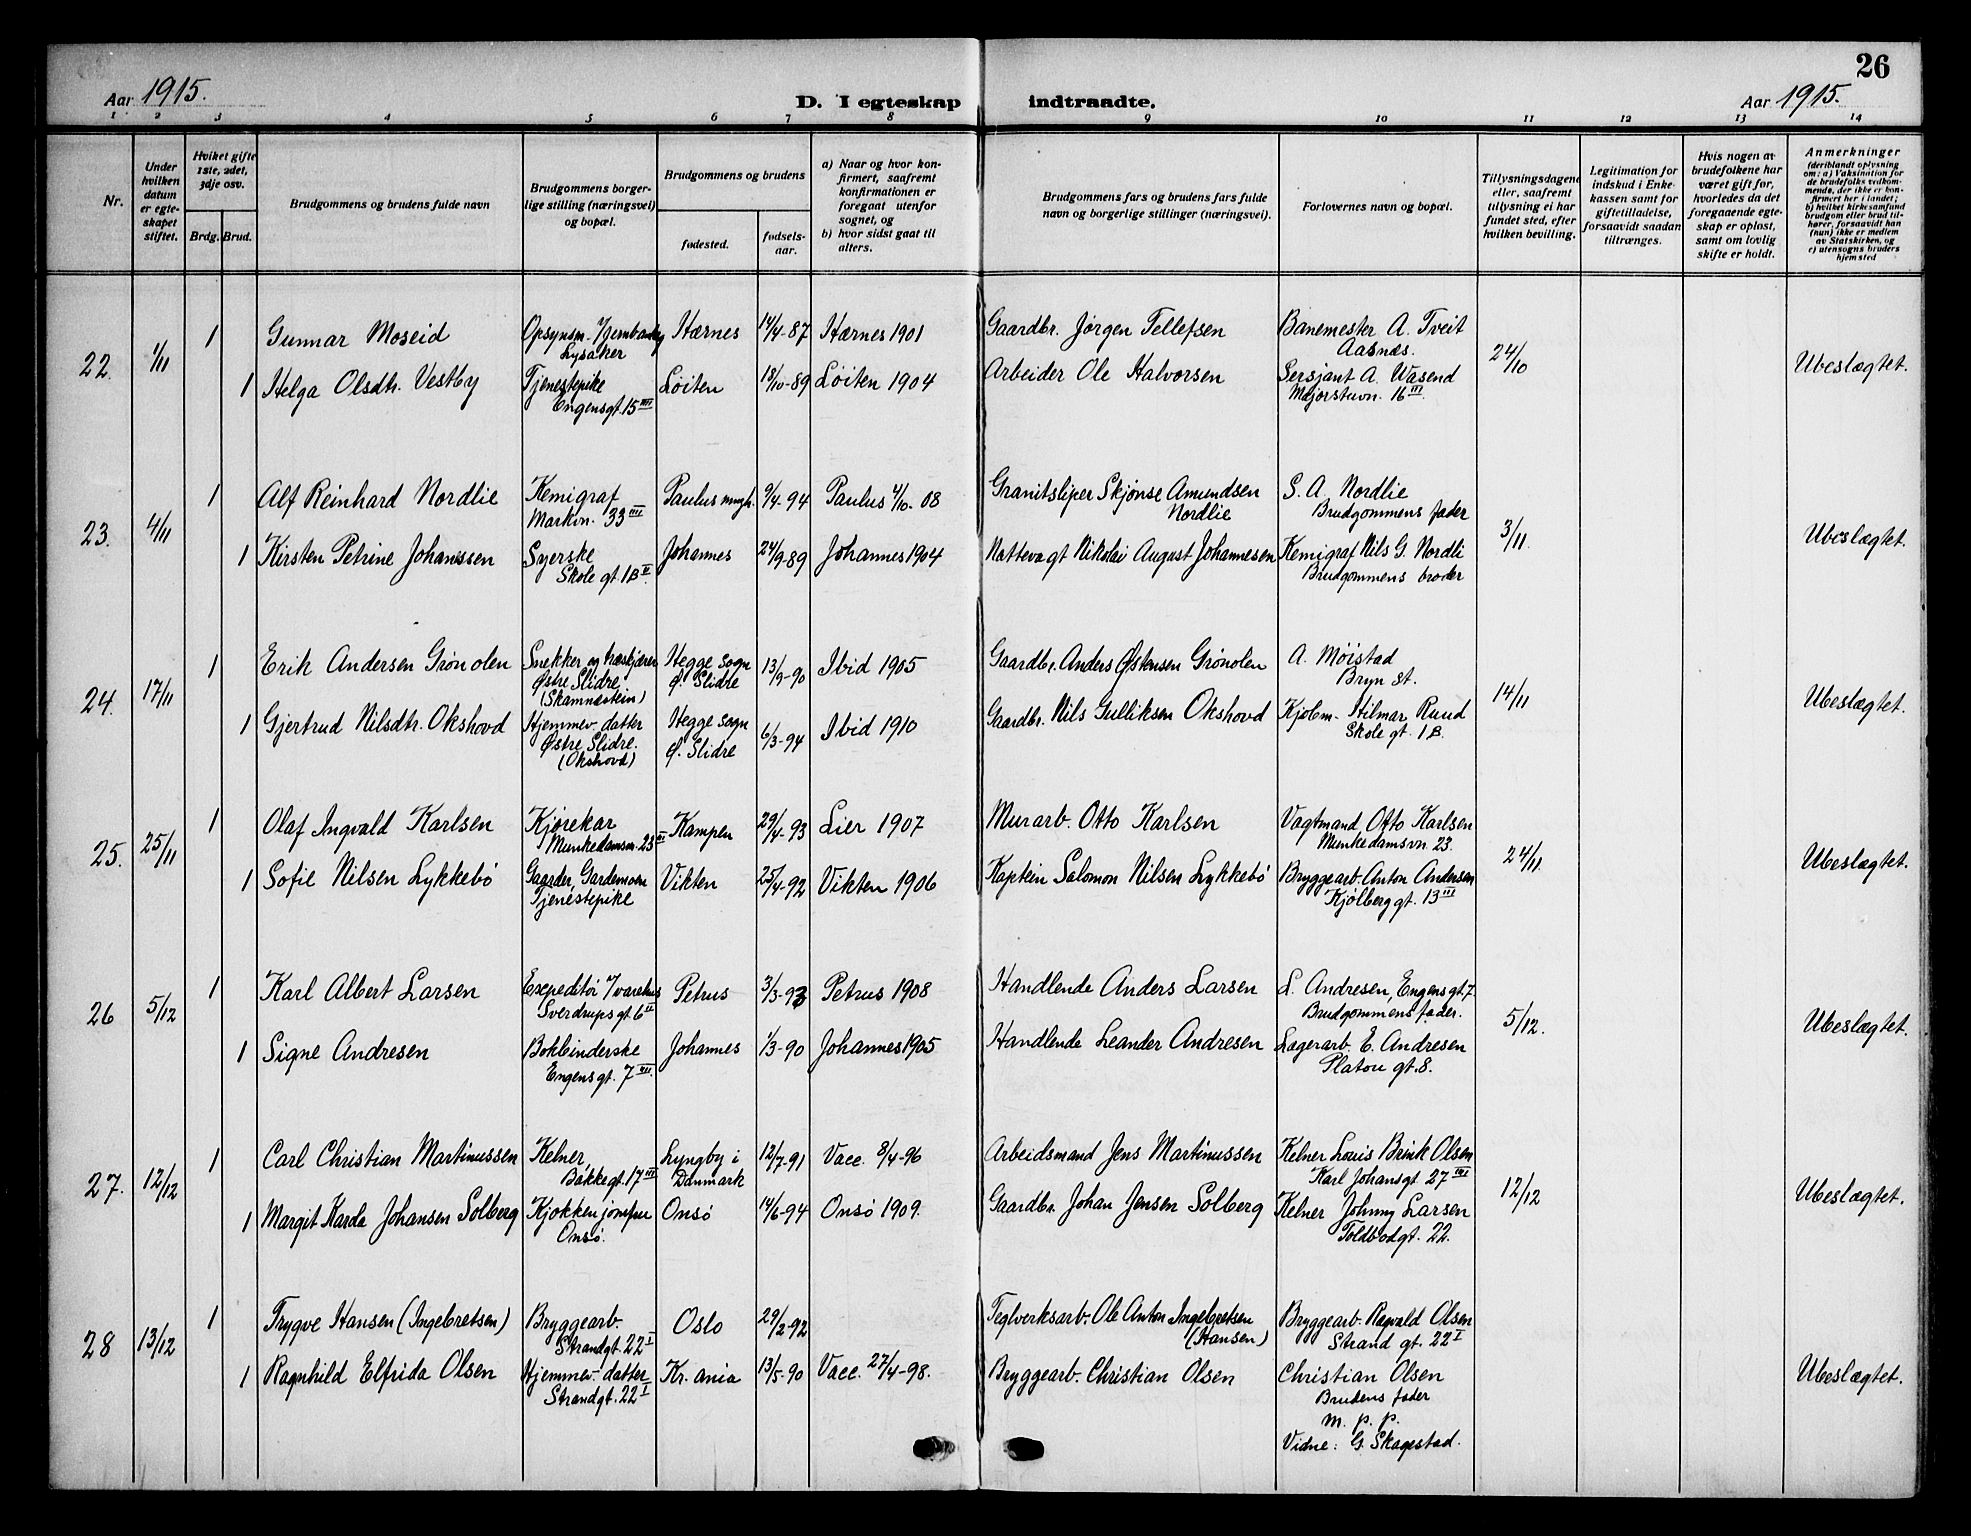 26
Aar 1915.
D. I egteskap indtraadte.
Aar 1915.
1 2 3 4 5 6 7 8 9 10 11 12 13 14
Nr.
Under hvilken datum er egteskapet stiftet.
Hviket gifte 1ste, 2det, 3dje osv.
Brdg. Brud.
Brudgommens og brudens fulde navn
Brudgommens borgerlige stilling (næringsvei) og bopæl.
Brudgommens og brudens
fødested.
fødselsaar.
a) Naar og hvor konfirmert, saafremt konfirmationen er foregaat utenfor sognet, og
b) hvor sidst gaat til alters.
Brudgommens fars og brudens fars fulde navn og borgerlige stillinger (næringsvei).
Forlovernes navn og bopæl.
Tillysningsdagene eller, saafremt tillysning ei har fundet sted, efter hvilken bevilling.
Legitimation for indskud i Enkekassen samt for giftetilladelse, forsaavidt saadan tiltrænges.
Hvis nogen av brudefolkene har været gift før, hvorledes da det foregaaende egteskap er opløst, samt om lovlig skifte er holdt.
Anmerkninger
(deriblandt oplysning om: a) Vaksination for de brudefolks vedkommende, der ikke er konfirmert her i landet; b) hvilket kirkesamfund brudgom eller brud tilhører, forsaavidt han (hun) ikke er medlem av Statskirken, og c) utensogns bruders hjemsted
22. 1/11 1 Gunnar Moseid Opsynsm. v/jernbaney Lysaker Hærnes 14/4-87 Hærnes 1901 Gaardbr. Jørgen Tellefsen Banemester A. Tveit Aasnæs. 24/10 Ubeslægtet.
1 Helga Olsdtr. Vestby Tjenestepike Engensgt. 15 III Løiten 18/10-89 Løiten 1904 Arbeider Ole Halvorsen Sersjant A. Wasend Majorstuvn. 16 III
23. 4/11 1 Alf Reinhard Nordlie Kemigraf Markvn. 33 III Paulus mngh. 9/4-94 Paulus 4/10-08 Granitsliper Skjönse Amundsen Nordlie S. A. Nordlie Brudgommens fader 3/11. Ubeslægtet.
1 Kirsten Petrine Johanssen Syerske Skole gt. 1B II Johannes 24/9-89 Johannes 1904 Nattevagt Nikolai August Johannesen Kemigraf Nils G. Nordli Brudgommens broder
24. 17/11 1 Erik Andersen Grönolen Snekker og træskjærer Østre Slidre (Skamnestein) Hegge sogn Ø. Slidre 13/9-90 Ibid 1905 Gaardbr. Anders Østensen Grønolen A. Möistad Bryn st. 14/11 Ubeslægtet.
1 Gjertrud Nilsdtr. Okshovd Hjemmev. datter Østre Slidre. (Okshovd) Hegge sogn Ø. Slidre 6/3-94 Ibid 1910 Gaardbr. Nils Gulliksen Okshovd Kjöbm. Hilmar Ruud Skole gt. 1B.
25. 25/11 1 Olaf Ingvald Karlsen Kjørekar Munkedamsvn. 23 III Kampen 29/4-93 Lier 1907 Murarb. Otto Karlsen Vagtmand Otto Karlsen Munkedamsvn. 23. 24/11. Ubeslægtet.
1 Sofie Nilsen Lykkebö Gaarder, Gardemoen Tjenestepike Vikten 25/4-92 Vikten 1906 Kaptein Salomon Nilsen Lykkebö Bryggearb. Anton Andersen Kjølberggt. 13 III
26 5/12 1 Karl Albert Larsen Expeditør i/varehus Sverdrupsgt. 6 II Petrus 3/3-93 Petrus 1908 Handlende Anders Larsen L. Andresen, Engensgt. 7. Brudgommens fader. 5/12. Ubeslægtet.
1 Signe Andresen Bokbinderske Engensgt. 7 III. Johannes 1/3-90 Johannes 1905 Handlende Leander Andresen Lagerarb. E. Andresen Platou gt. 8.
27. 12/12 1 Carl Christian Martinussen Kelner Bakkegt. 17 III Lyngby i Danmark 12/7-91 Vacc. 8/4-96 Arbeidsmand Jens Martinussen Kelner Louis Brink Olsen Karl Johansgt 27 III 12/12 Ubeslægtet.
1 Margit Karda Johansen Solberg Kjøkkenjomfru Onsö. Onsö 14/6-94 Onsö 1909. Gaardbr. Johan Jensen Solberg Kelner Johnny Larsen Toldbodgt. 22.
28 13/12 1 Trygve Hansen (Ingebretsen) Bryggearb. Strandgt. 22 I Oslo 29/2-92 Teglverksarb. Ole Anton Ingebretsen (Hansen) Bryggearb. Ragvald Olsen Strand gt. 22 I Ubeslægtet.
1 Ragnhild Elfrida Olsen Hjemmev. datter Strandgt. 22 I Kr.ania 13/5-90 Vacc. 27/4-98. Bryggearb. Christian Olsen Christian Olsen Brudens fader
m. p. p.
Vidne: G. Skagestad.